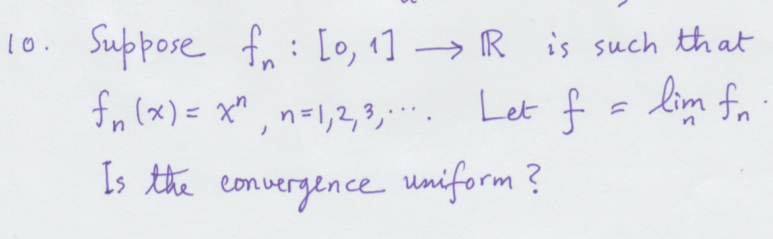 10. Suppose fₙ : [0, 1] → ℝ is such that
fₙ(x) = xⁿ, n=1,2,3,⋯. Let f = lim_n fₙ.
Is the convergence uniform?